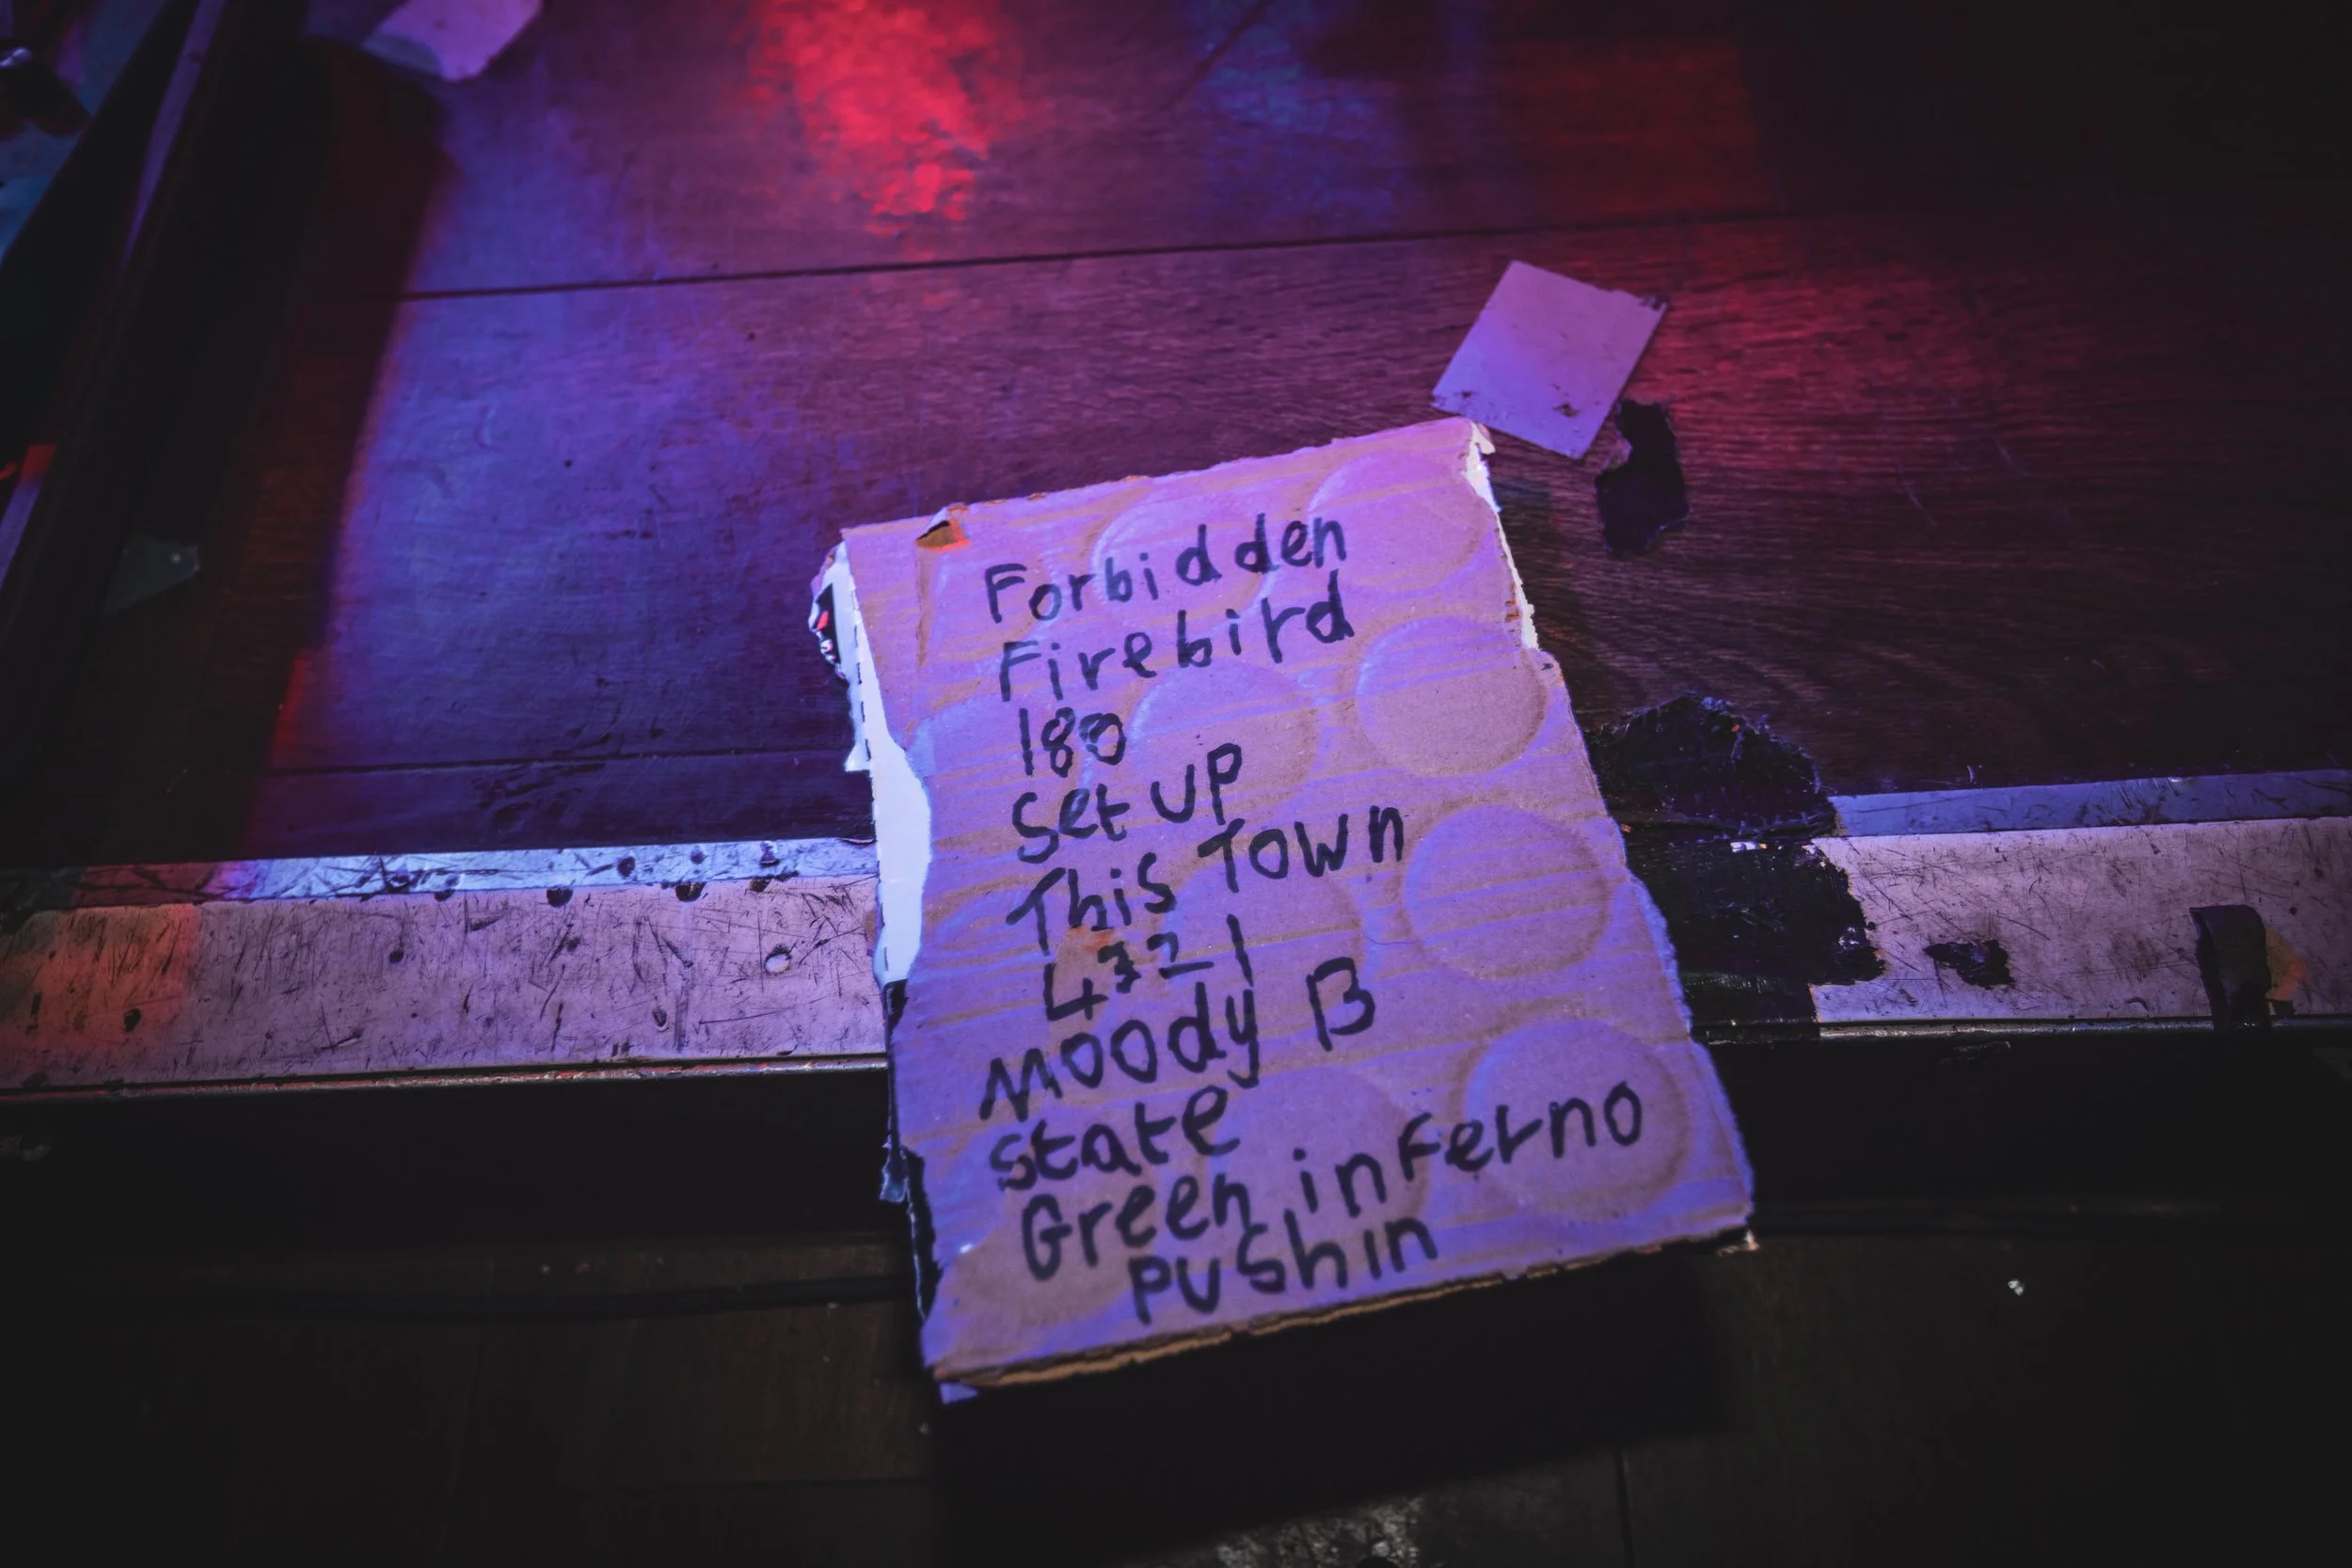 Forbidden
Firebird
180
Set up
This Town
4321
Moody B
State
Green inferno
pushin